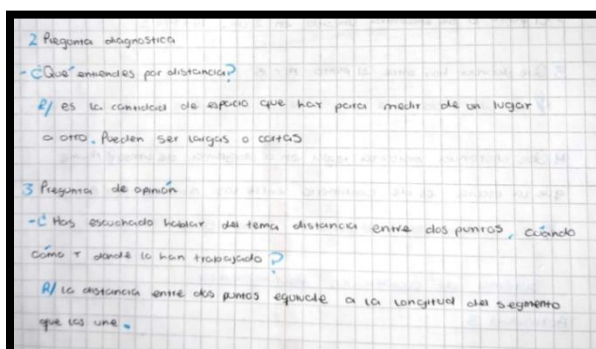 2 Pregunta diagnostica
- ¿Qué entiendes por distancia?
R/ es la cantidad de espacio que hay para medir de un lugar
a otro. Pueden ser largas o cortas
3 Pregunta de opinión
- ¿ Has escuchado hablar del tema distancia entre dos puntos, cuándo
cómo y donde lo han trabajado?
R/ la distancia entre dos puntos equivale a la longitud del segmento
que los une.